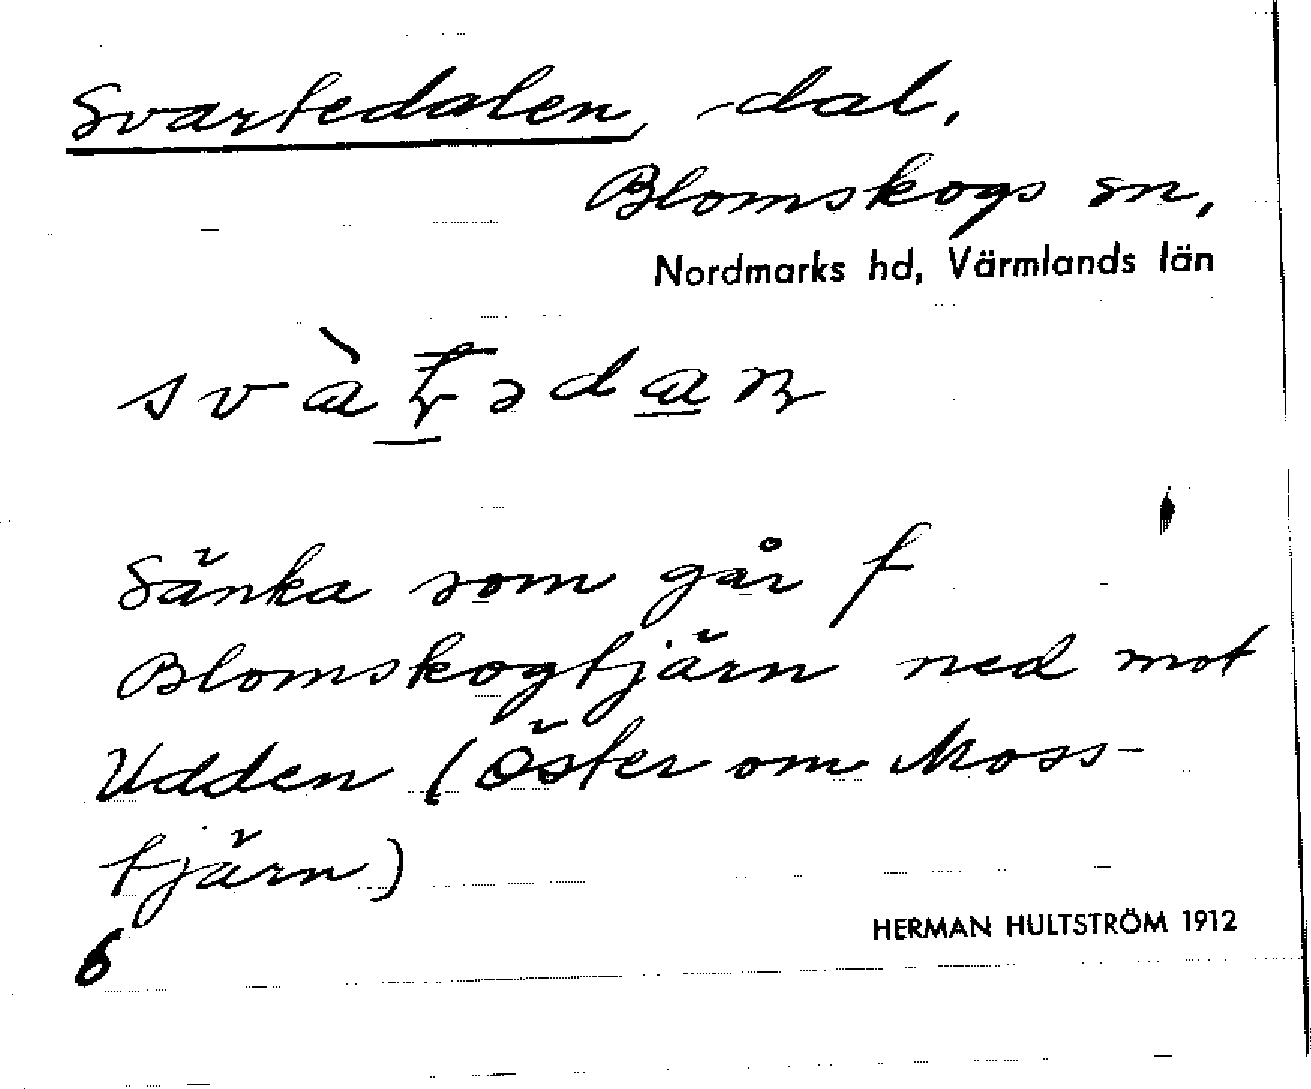 Svartedalen, dal,
Blomskogs sn,
Nordmarks hd, Värmlands län
Sänka som går f
Blomskogtjärn ned mot
Udden (Öster om Moss-
tjärn)
6
HERMAN HULTSTRÖM 1912